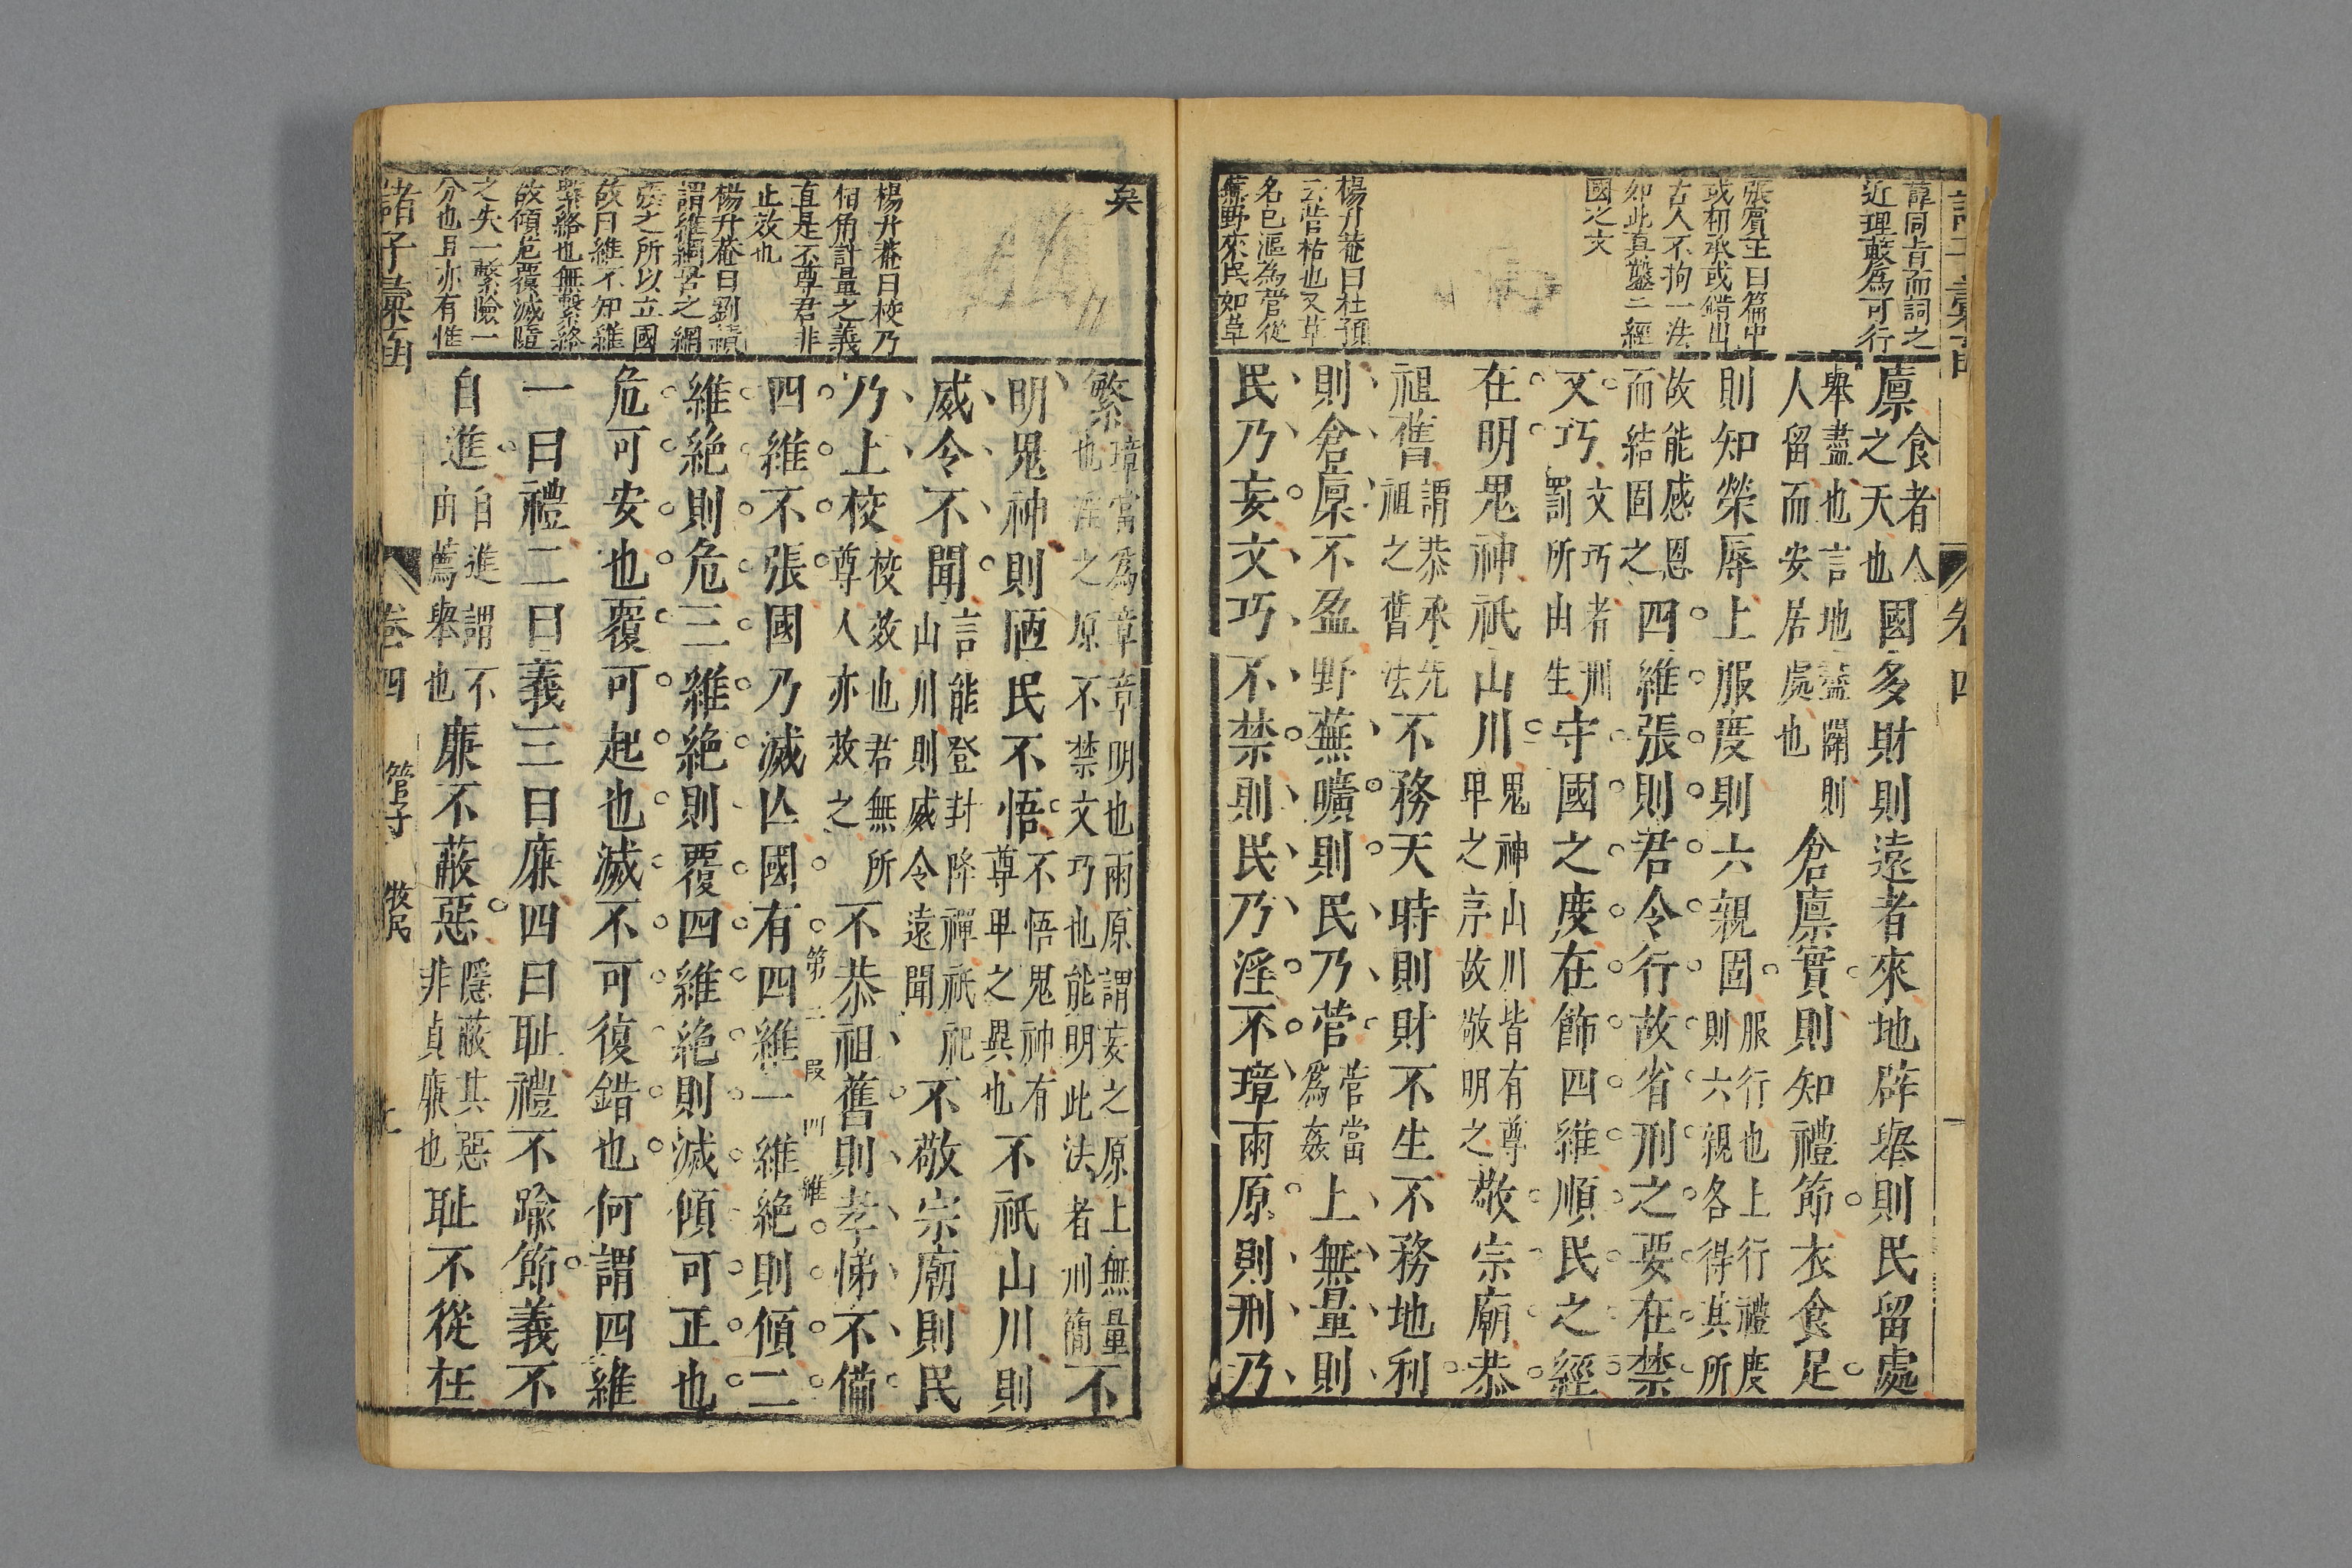 諸子彙函
卷四
韋同旨而詞之
近理蔽為可行
張賓王曰篇中
或相承或錯出
古人不拘一法
如此真鑿二經
國之文
楊升菴曰杜預
云菅枯也又草
名已漚為菅從
蕪野來民如草
廩食者人之天也國多財則遠者來地辟舉則民留處
舉盡也言地盡闢則人留而安居處也倉廩實則知禮節衣食足
則知榮辱上服度則六親固服行也上行禮度則六親各得其所
故能感恩而結固之四維張則君令行故省刑之要在禁
文巧文巧者刑罰所由生守國之度在飾四維順民之經
在明鬼神祇山川鬼神山川皆有尊卑之序故敬明之敬宗廟恭
祖舊謂恭承先祖之舊法不務天時則財不生不務地利
則倉廩不盈野蕪曠則民乃菅菅當為姦上無量則
民乃妄文巧不禁則民乃淫不璋兩原則刑乃
矣
楊升菴曰校乃
相角計量之義
直是不尊君非
止效也
楊升菴曰劉績
謂維網罟之綱
張之所以立國
故曰維不知維
繫絡也無繫絡
故傾危覆滅隨
之失一繫險一
分也且亦有惟
繁璋當為章章明也兩原謂妄之原上無量也淫之原不禁文巧也能明此法者刑簡不
明鬼神則陋民不悟不悟鬼神有尊卑之異也不祇山川則
威令不聞言能登封降禪祇祀山川則威令遠聞不敬宗廟則民
乃上校校效也君無所尊人亦效之不恭祖舊則孝悌不備
四維不張國乃滅亾國有四維一維絕則傾二
第二段四維
維絕則危三維絕則覆四維絕則滅傾可正也
危可安也覆可起也滅不可復錯也何謂四維
一曰禮二曰義三曰廉四曰耻禮不踰節義不
自進自進謂不由薦舉也廉不蔽惡隱蔽其惡非貞廉也耻不從枉
諸子彙函
卷四
管子
牧民